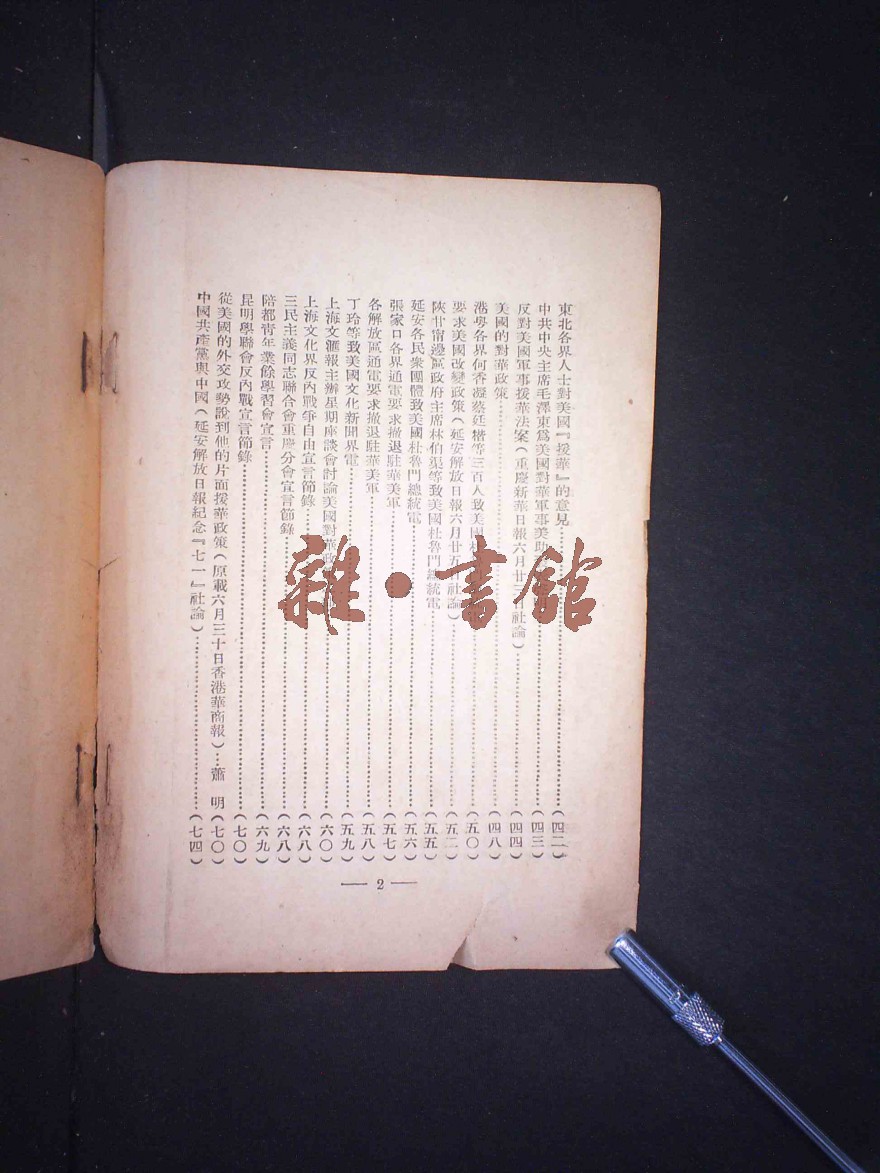 東北各界人士對美國『援華』的意見……(四二)
中共中央主席毛澤東爲美國對華軍事美助……(四三)
反對美國軍事援華法案(重慶新華日報六月廿 日社論)……(四四)
美國的對華政策……(四八)
港粤各界何香凝蔡廷楷等三百人致美國……(五〇)
要求美國改變政策(延安解放日報六月廿五日社論)……(五二)
陝甘甯邊區政府主席林伯渠等致美國杜魯門總統電……(五五)
延安各民衆團體致美國杜魯門總統電……(五六)
張家口各界通電要求撤退駐華美軍……(五七)
各解放區通電要求撤退駐華美軍……(五八)
丁玲等致美國文化新聞界電……(五九)
上海文滙報主辦星期座談會討論美國對華政……(六〇)
上海文化界反內戰爭自由宣言節錄……(六八)
三民主義同志聯合會重慶分會宣言節錄……(六八)
陪都靑年業餘學習會宣言……(六九)
昆明學聯會反內戰宣言節錄……(七〇)
從美國的外交攻勢說到他的片面援華政策(原載六月三十日香港華商報)…蕭 明(七〇)
中國共產黨與中國(延安解放日報紀念『七一』社論)……(七四)
— 2 —
雜·書館